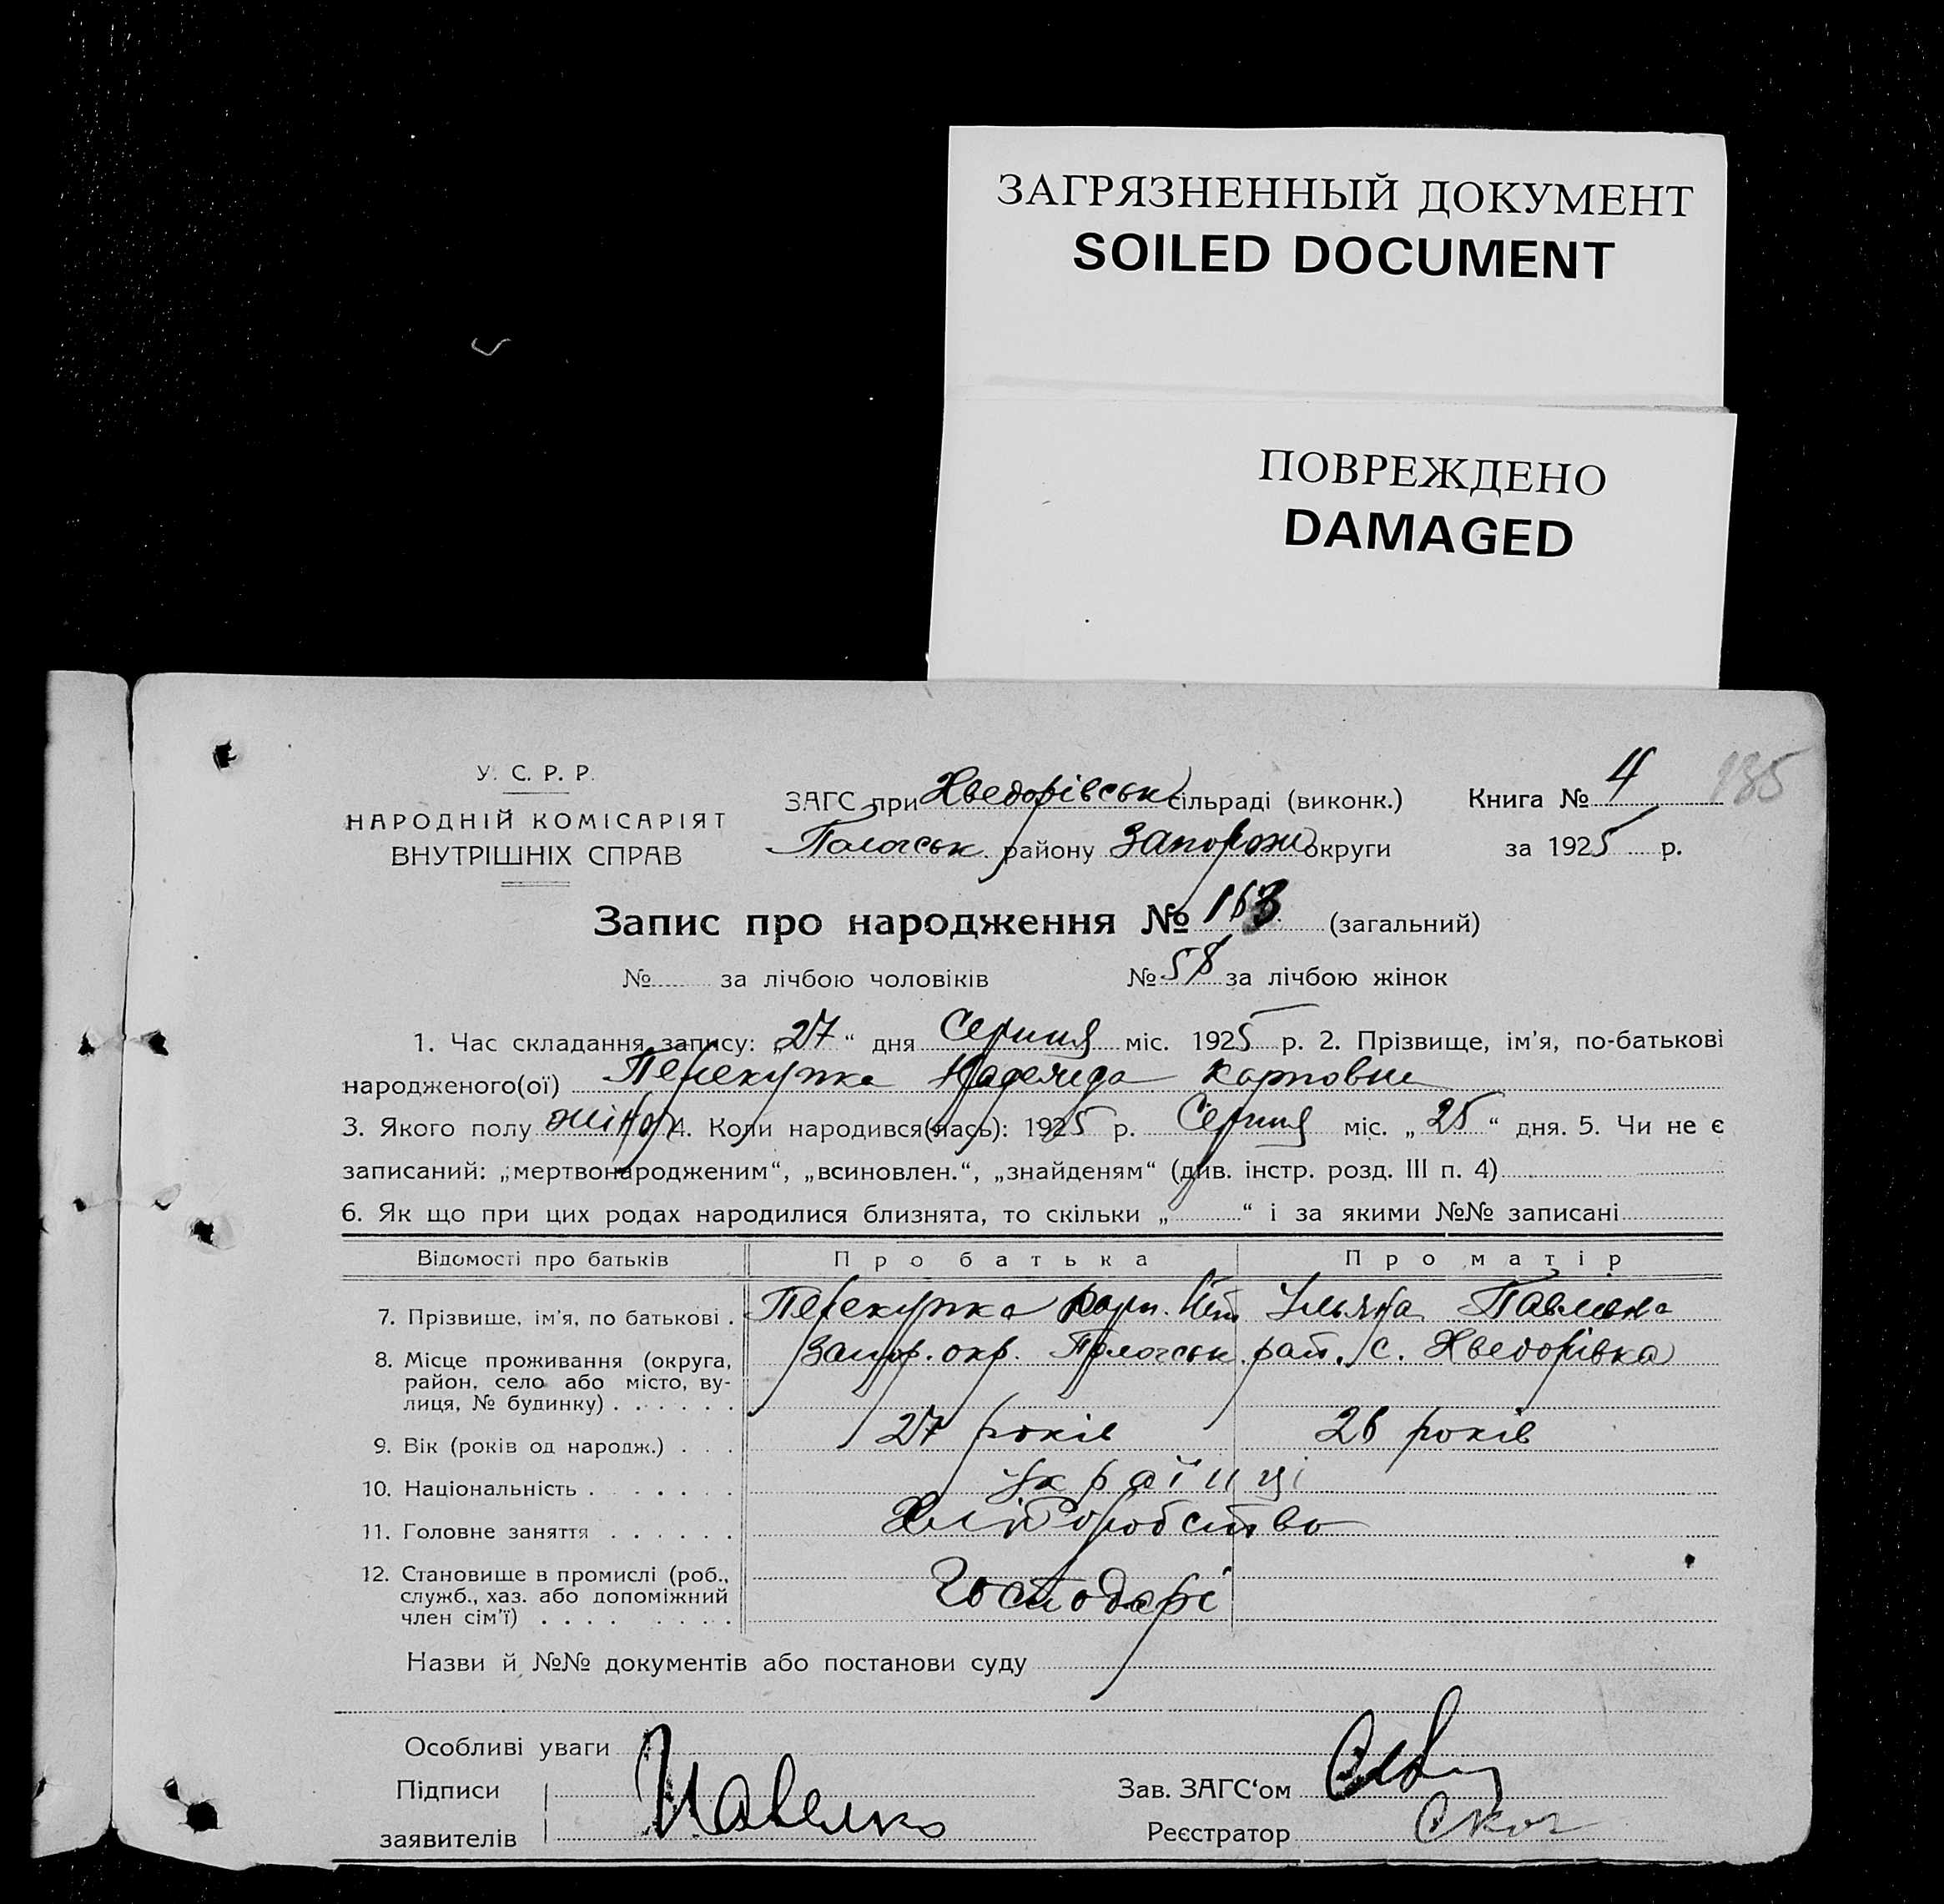 ЗАГРЯЗНЕННЫЙ ДОКУМЕНТ
SOILED DOCUMENT
ПОВРЕЖДЕНО
DAMAGED
У. С. Р. Р.
НАРОДНІЙ КОМІСАРІЯТ
ВНУТРІШНІХ СПРАВ
ЗАГС при Хведорівськ сільраді (виконк.) Книга № 4 185
Пологськ. району Запорож округи за 1925 р.
Запис про народження № 163 (загальний)
№ за лічбою чоловіків № 58 за лічбою жінок
1. Час складання запису: „27“ дня Серпня міс. 1925 р. 2. Прізвище, ім'я, по-батькові
народженого(ої) Перекупка Надежда Карповна
3. Якого полу жіноч 4. Коли народився(лась): 1925 р. Серпня міс. „25“ дня. 5. Чи не є
записаний: „мертвонародженим“, „всиновлен.“, „знайденям“ (див. інстр. розд. III п. 4)
6. Як що при цих родах народилися близнята, то скільки „ “ і за якими №№ записані
Відомості про батьків Про батька Про матір
7. Прізвище, ім'я, по батькові . Перекупка Карп. Ульяна Павловна
8. Місце проживання (округа, Запор. окр. Пологськ. рай. с. Хведорівка
район, село або місто, ву-
лиця, № будинку) . . . . . .
9. Вік (років од народж.) . . . 27 років 26 років
10. Національність . . . . . . . українці
11. Головне заняття . . . . . . Хліборобство
12. Становище в промислі (роб.,
служб., хаз. або допоміжний Господарі
член сім'ї) . . . . . . . .
Назви й №№ документів або постанови суду
Особливі уваги
Підписи
заявителів
Зав. ЗАГС'ом
Реєстратор